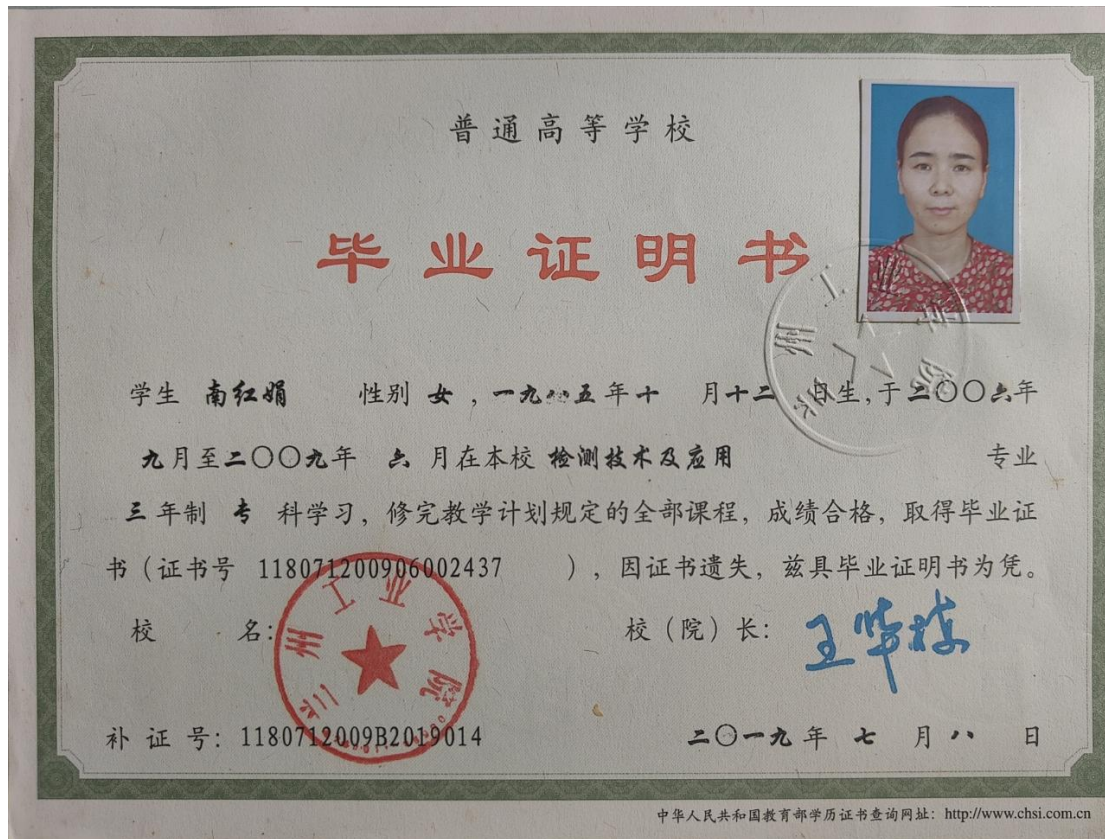 普通高等学校
毕业证明书
学生 南红娟 性别 女 ，一九八五年十 月十二 日生，于二〇〇六年
九月至二〇〇九年 六 月在本校 检测技术及应用 专业
三年制 专 科学习，修完教学计划规定的全部课程，成绩合格，取得毕业证
书（证书号 118071200906002437 ），因证书遗失，兹具毕业证明书为凭。
校 名： 校（院）长： 王华栋
兰州工业学院
补 证 号：1180712009B2019014 二〇一九年 七 月 八 日
中华人民共和国教育部学历证书查询网址：http://www.chsi.com.cn